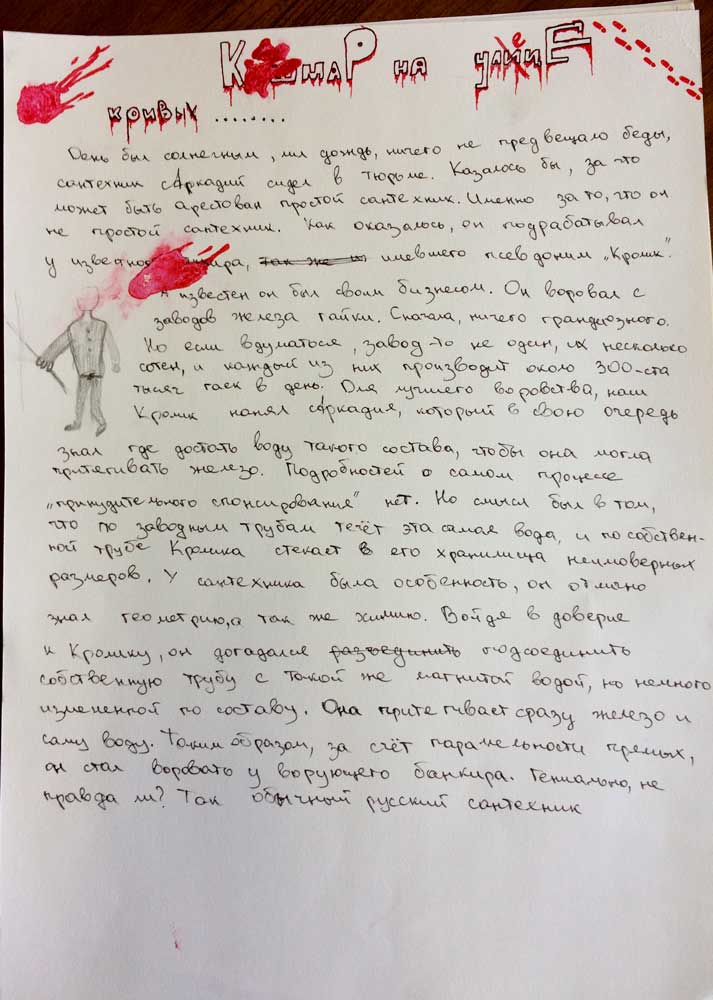 КошмаР на улице
кривых ........
День был солнечным, лил дождь, ничего не предвещало беды,
сантехник Аркадий сидел в тюрьме. Казалось бы, за что
может быть арестован простой сантехник. Именно за то, что он
не простой сантехник. Как оказалось, он подрабатывал
у известного банкира, так же и имевшего псевдоним „Кролик".
А известен он был своим бизнесом. Он воровал с
заводов железа гайки. Сначала, ничего грандиозного.
Но если вдуматься, завод-то не один, их несколько
сотен, и каждый из них производит около 300-ста
тысяч гаек в день. Для лучшего воровства, наш
Кролик нанял Аркадия, который в свою очередь
знал где достать воду такого состава, чтобы она могла
притягивать железо. Подробностей о самом процессе
„принудительного спонсирования" нет. Но смысл был в том,
что по заводным трубам течёт эта самая вода, и по собствен-
ной трубе Кролика стекает в его хранилища неимоверных
размеров. У сантехника была особенность, он отлично
знал геометрию, а так же химию. Войдя в доверие
к Кролику, он догадался разъединить подсоединить
собственную трубу с такой же магнитой водой, но немного
измененной по составу. Она притегивает сразу железо и
саму воду. Таким образом, за счёт паралельности прямых,
он стал воровать у ворующего банкира. Гениально, не
правда ли? Так обычный русский сантехник